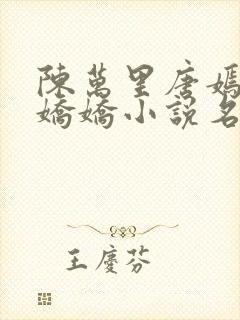 陳萬里唐嫣
嬌嬌小說名
王慶芬